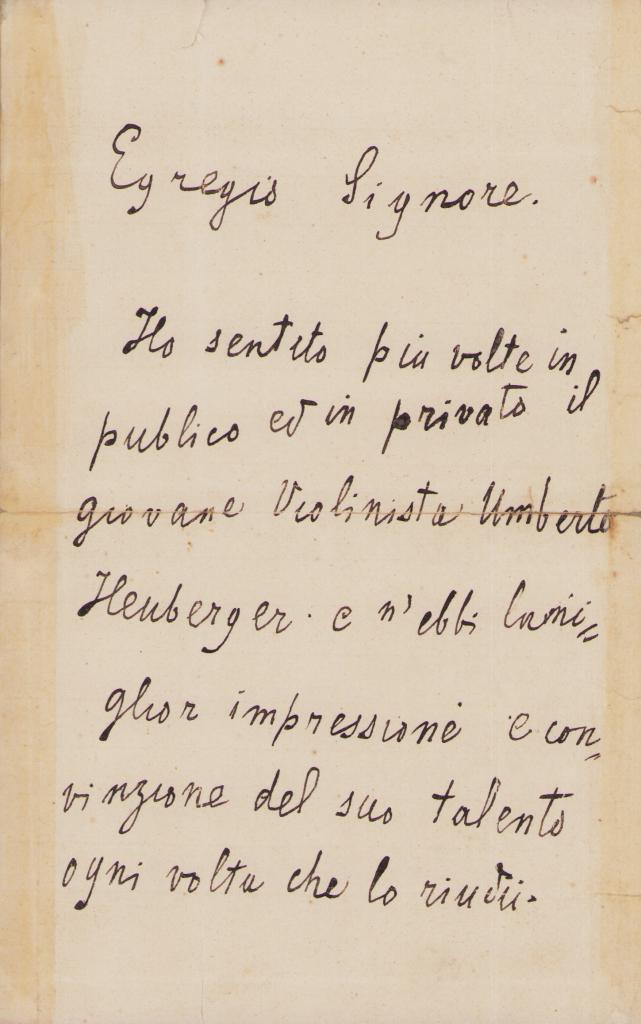 Egregio Signore.
Ho sentito piu volte in
publico ed in privato il
giovane Violinista Umberto
Heuberger. e n'ebbi la mi=
glior impressione e con=
vinzione del suo talento
ogni volta che lo riudii.